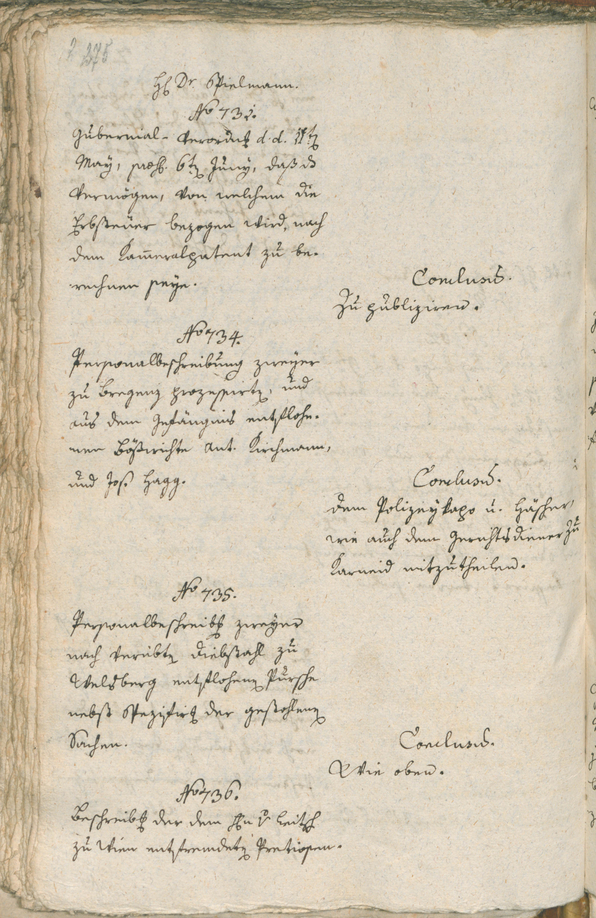 375
H Dr Spielmann.
No 733.
Gubernial-Verordng d. d. 18t
May, præs. 6t Juny, daß ds
Vermögen, von welchem die
Erbsteuer bezogen wird, nach
dem Kammeralpatent zu be-
rechnen seye.
Conclusum.
Zu publiziren.
No 734.
Personalbeschreibung zweyer
zu Bregenz prozessirtn, und
aus dem Gefängnis entflohe-
nen Bößwichte Ant. Kirchmann,
und Jos. Hagg.
Conclusum.
dem Polizeykapo u. Häscher,
wie auch dem Gerichtsdiener zu
Karneid mitzutheilen.
No 735.
Personalbeschreibg zweyer
nach verübtn Diebstahl zu
Welsberg entflohenn Pursche
nebst Spezifizg der gestohlenn
Sachen.
Conclusum.
Wie oben.
No 736.
Beschreibg der dem Hn v. Leitsch
zu Wien entfremdetn Pretiosen.